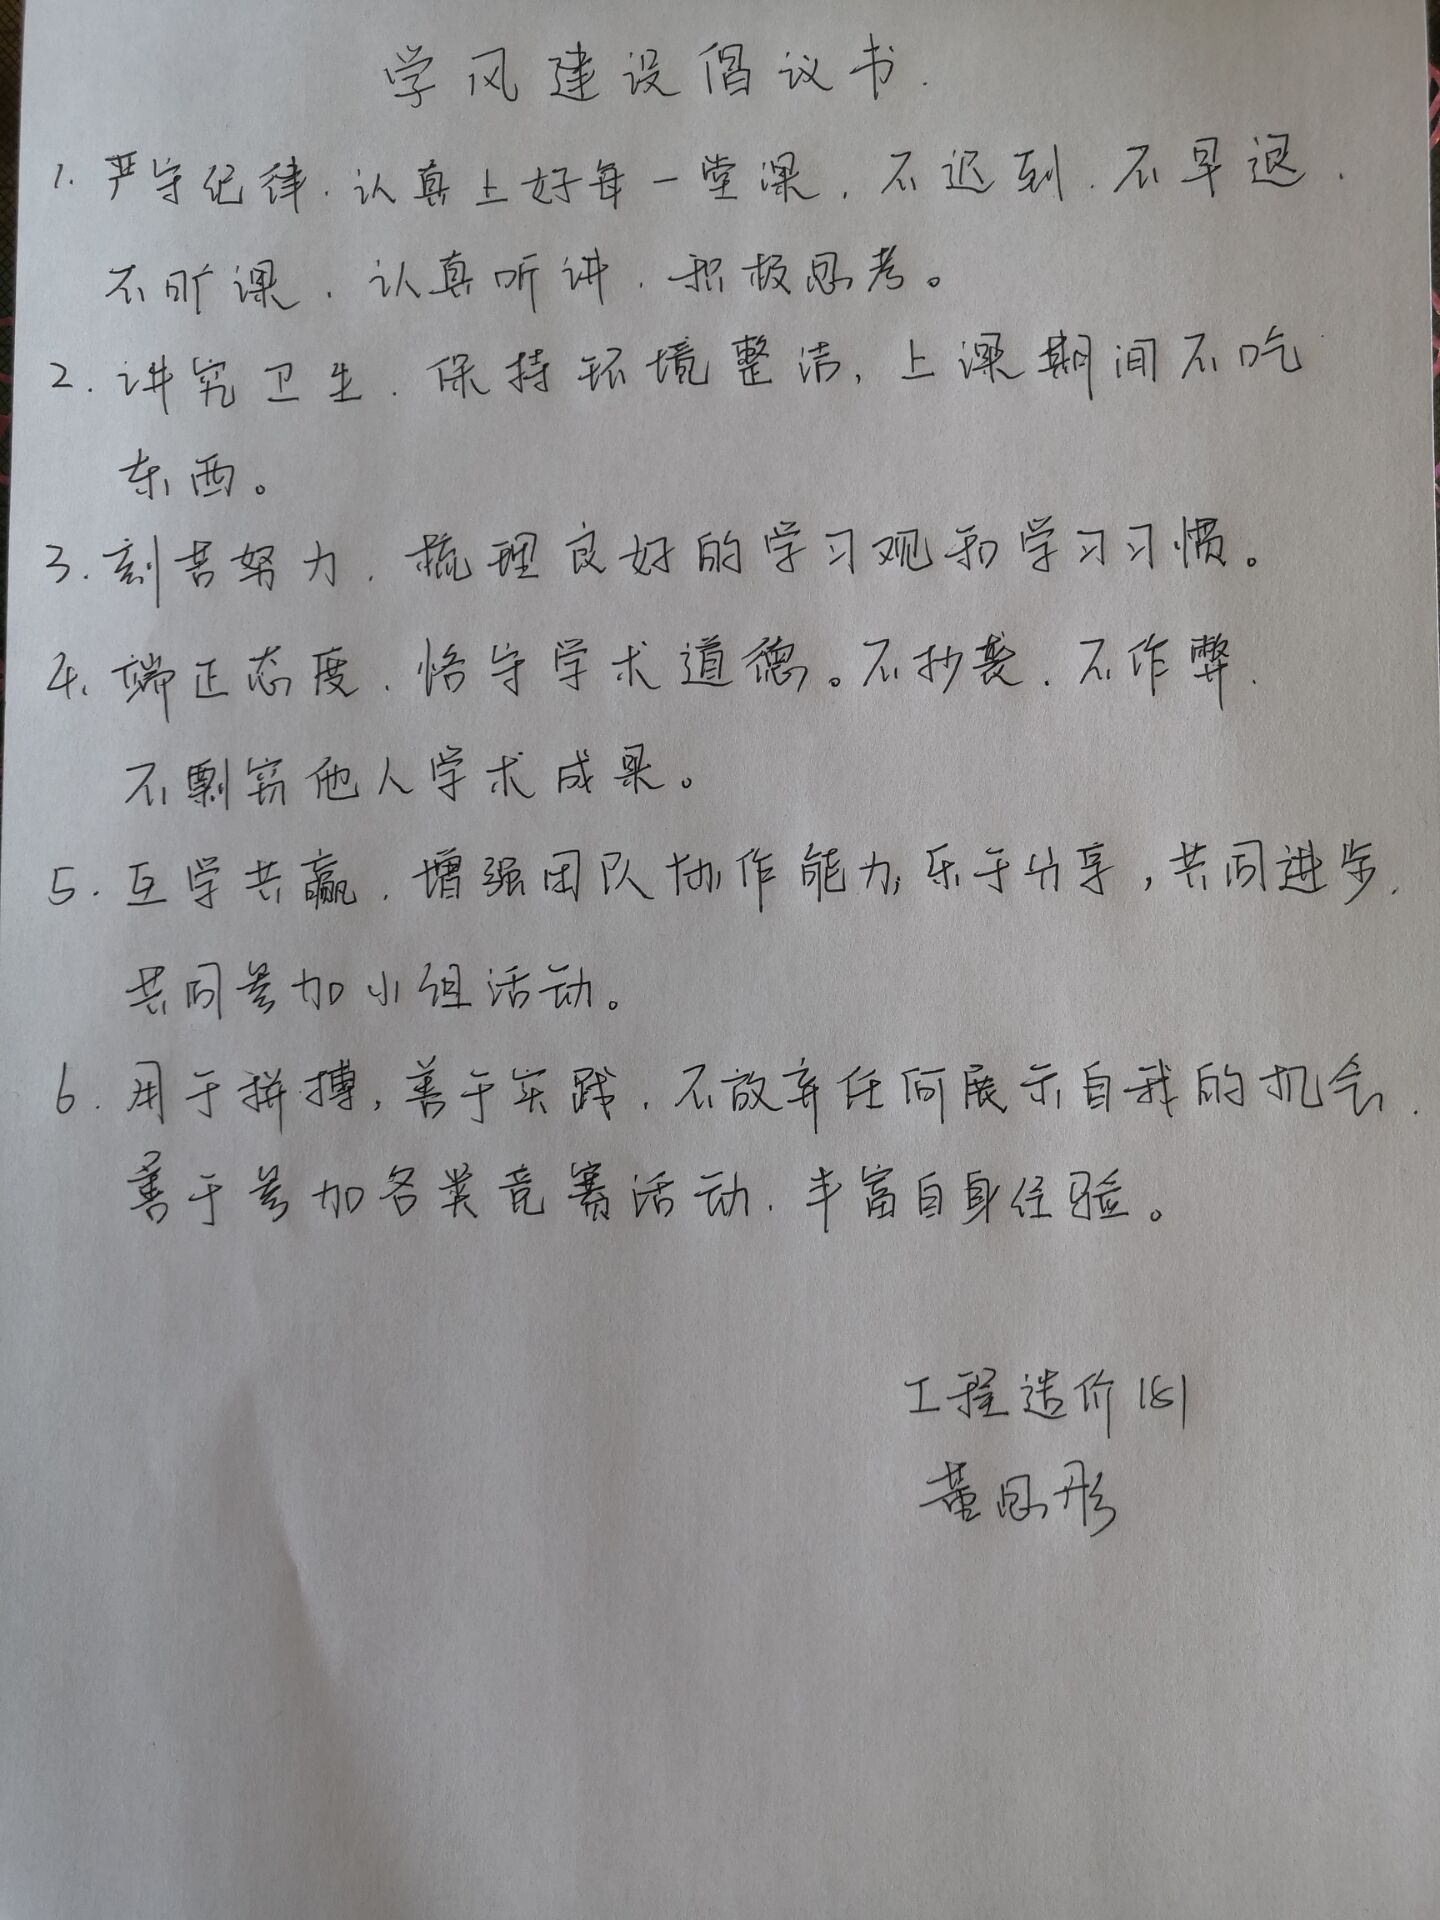 学风建设倡议书.
1. 严守纪律，认真上好每一堂课，不迟到，不早退，
不旷课，认真听讲，积极思考。
2. 讲究卫生，保持环境整洁，上课期间不吃
东西。
3. 刻苦努力，梳理良好的学习观和学习习惯。
4. 端正态度，恪守学术道德。不抄袭，不作弊，
不剽窃他人学术成果。
5. 互学共赢，增强团队协作能力，乐于分享，共同进步，
共同参加小组活动。
6. 用于拼搏，善于实践，不放弃任何展示自我的机会，
善于参加各类竞赛活动，丰富自身经验。
工程造价181
董思彤